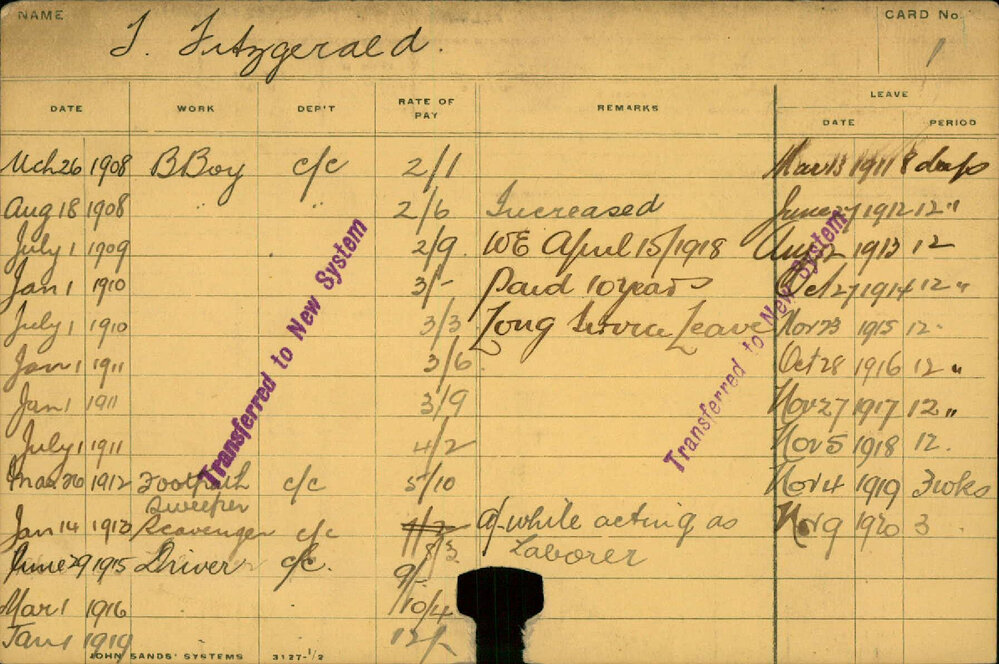 NAME T. Fitzgerald. CARD No. 1
DATE WORK DEP'T RATE OF PAY REMARKS LEAVE
DATE PERIOD
Mch 26 1908 B Boy c/c 2/1 Mar 13 1911 8 days
Aug 18 1908 " " 2/6 Increased June 27 1912 12 "
July 1 1909 2/9 WE April 15/1918 1913 12
Jan 1 1910 3/- Paid 10 years Oct 27 1914 12 "
July 1 1910 3/3 Long Leave Nov 23 1915 12
Jan 1 1911 3/6 Oct 28 1916 12 "
Jan 1 1911 3/9 Nov 27 1917 12 "
July 1 1911 4/2 Nov 5 1918 12
Mar 26 1912 Footpath c/c 5/10 Nov 4 1919 3 wks
Sweeper
Jan 14 1913 Scavenger c/c 8/3 while acting as Nov 9 1920 3
Laborer
June 29 1915 Driver c/c. 9/-
Mar 1 1916 10/4
Jan 1 1919 12/-
Transferred to New System
Transferred to New System
JOHN SANDS' SYSTEMS 3127-1/2